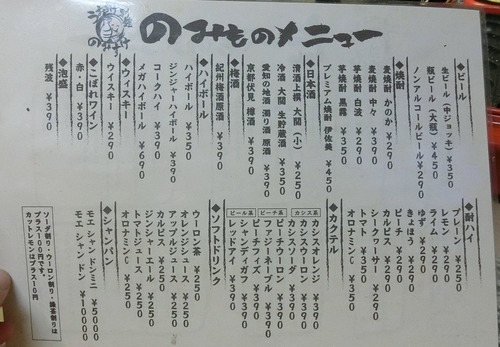 のみものメニュー
◆ビール
生ビール(中ジョッキ) ¥350
瓶ビール(大瓶) ¥450
ノンアルコールビール ¥290
◆焼酎
麦焼酎 かのか ¥290
麦焼酎 中々 ¥390
芋焼酎 白波 ¥290
芋焼酎 黒霧 ¥350
プレミアム焼酎 伊佐美 ¥450
◆日本酒
清酒上撰 大関(小) ¥250
冷酒 大関 生貯蔵酒 ¥390
愛知の地酒 濁り酒 原酒 ¥390
京都伏見 樽酒 ¥390
◆梅酒
紀州梅酒原酒 ¥390
◆ハイボール
ハイボール ¥350
ジンジャーハイボール ¥390
コークハイ ¥390
メガハイボール ¥690
◆ウィスキー
ウィスキー ¥290
◆こぼれワイン
赤・白 ¥390
◆泡盛
残波 ¥390
◆酎ハイ
プレーン ¥250
レモン ¥290
ライム ¥290
ゆず ¥290
きょほう ¥290
ピーチ ¥290
カルピス ¥290
シークワーサー ¥290
トマト ¥350
オロナミンC ¥350
◆カクテル
カシス系
カシスオレンジ ¥390
カシスウーロン ¥390
カシスソーダ ¥390
ピーチ系
ピーチウーロン ¥390
ファジーネーブル ¥390
ピーチフィズ ¥390
ビール系
シャンディガフ ¥390
レッドアイ ¥390
◆ソフトドリンク
ウーロン茶 ¥250
オレンジジュース ¥250
アップルジュース ¥250
カルピス ¥250
ジンジャーエール ¥250
トマトジュース ¥250
オロナミンC ¥250
◆シャンパン
モエ シャンドンミニ ¥5000
モエ シャンドン ¥10000
ソーダ割り・ウーロン割り・緑茶割りは
プラス100円です。
カットレモンはプラス10円